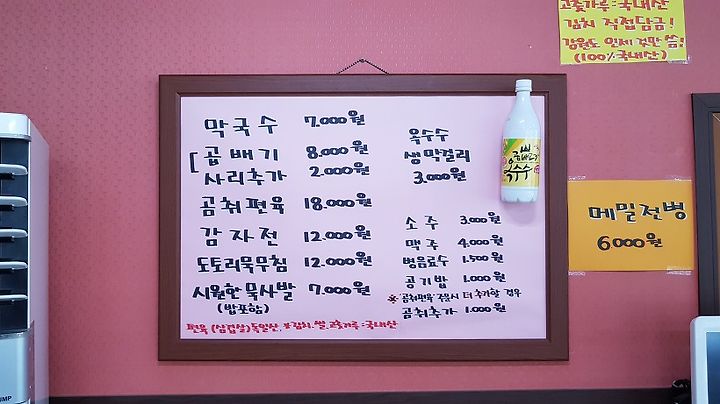 고춧가루:국내산
김치 직접담금!
강원도 인제 것만 씀!
(100%국내산)
막국수 7.000원
곱배기 8.000원
사리추가 2.000원
곰취편육 18.000원
감자전 12.000원
도토리묵무침 12.000원
시원한 묵사발 7.000원
(밥포함)
편육(삼겹살)독일산, 쌀,고춧가루:국내산
옥수수
생막걸리
3.000원
소주 3.000원
맥주 4.000원
병음료수 1.500원
공기밥 1.000원
※곰취편육 주문시 더 추가할 경우
곰취추가 1.000원
옥수수
메밀전병
6000원